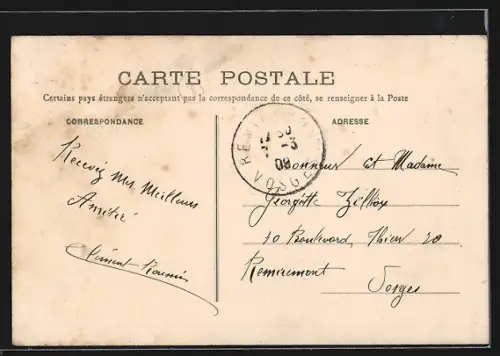 CARTE POSTALE
Certains pays étrangers n'acceptent pas la correspondance de ce côté, se renseigner à la Poste
CORRESPONDANCE
ADRESSE
Recevez mes meilleurs
Amitié
Clément
17 30
-3
09
VOSGES
Monsieur et Madame
Georgette
20 Boulevard Thiers 20
Remiremont
Vosges